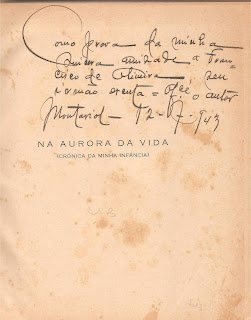 Como prova da minha
sincera amizade a Fran-
cisco de Oliveira, seu
irmão o autor
Montariol - 12-
NA AURORA DA VIDA
(CRÓNICA DA MINHA INFÂNCIA)